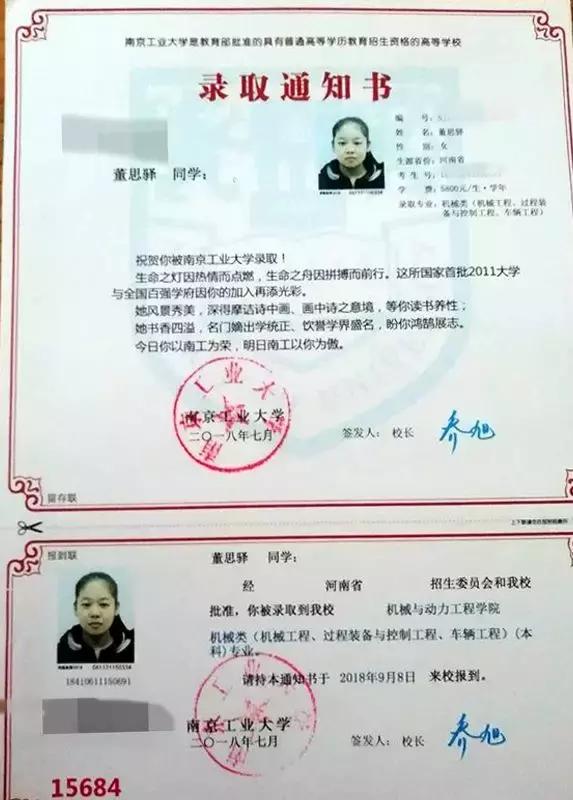 南京工业大学是教育部批准的具有普通高等学历教育招生资格的高等学校
录取通知书
编 号：
姓 名：董思驿
性 别：女
生源省份：河南省
考 生 号：
学 费：5800元/生·学年
录取专业：机械类（机械工程、过程装
备与控制工程、车辆工程）
董思驿 同学：
祝贺你被南京工业大学录取！
生命之灯因热情而点燃，生命之舟因拼搏而前行。这所国家首批2011大学
与全国百强学府因你的加入再添光彩。
她风景秀美，深得摩诘诗中画、画中诗之意境，等你读书养性；
她书香四溢，名门嫡出学统正、饮誉学界盛名，盼你鸿鹄展志。
今日你以南工为荣，明日南工以你为傲。
南京工业大学
南京工业大学
二〇一八年七月
签发人： 校长 乔旭
留存联
报到联
董思驿 同学：
经 河南省 招生委员会和我校
批准，你被录取到我校 机械与动力工程学院
机械类（机械工程、过程装备与控制工程、车辆工程）（本
科）专业。
请持本通知书于 2018年9月8日 来校报到。
18410611150691
南京工业大学
二〇一八年七月
签发人： 校长 乔旭
15684